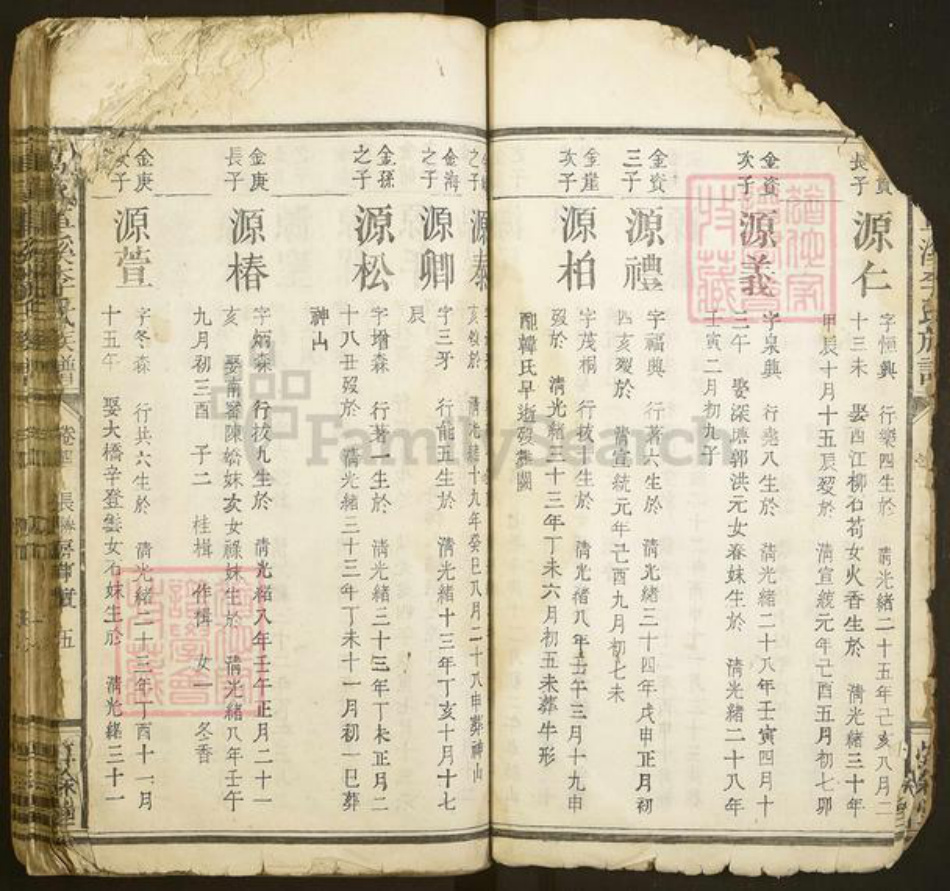 長子
源仁
字恒興 行樂四生於 清光緒二十五年己亥八月二
十三未 娶西江柳石苟女火香生於 清光緒三十年
甲辰十月十五辰歿於 清宣統元年己酉五月初七卯
金資
次子
源義
字泉興 行堯八生於 清光緒二十八年壬寅四月十
三午 娶深塘郭洪元女春妹生於 清光緒二十八年
壬寅二月初九子
金資
三子
源禮
字福興 行蓍六生於 清光緒三十四年戊申正月初
四亥歿於 清宣統元年己酉九月初七未
金崖
次子
源柏
字茂桐 行拔十生於 清光緒八年壬午三月十九申
歿於 清光緒三十三年丁未六月初五未葬牛形
配韓氏早逝歿
之子
源泰
清光緒十九年癸巳八月二十八申葬神山
金海
之子
源卿
字三牙 行能五生於 清光緒十三年丁亥十月十七
辰
金孫
之子
源松
字增森 行蓍一生於 清光緒三十三年丁未正月二
十八丑歿於 清光緒三十三年丁未十一月初一巳葬
神山
金庚
長子
源椿
字炳森 行拔九生於 清光緒八年壬午正月二十一
亥 娶南窖陳松妹女祿妹生於 清光緒八年壬午
九月初三酉 子二 桂楫 作楫 女一 冬香
金庚
次子
源萱
字冬森 行共六生於 清光緒二十三年丁酉十一月
十五午 娶大橋辛登雲女石妹生於 清光緒三十一
族譜 卷四 長 房 五
FamilySearch